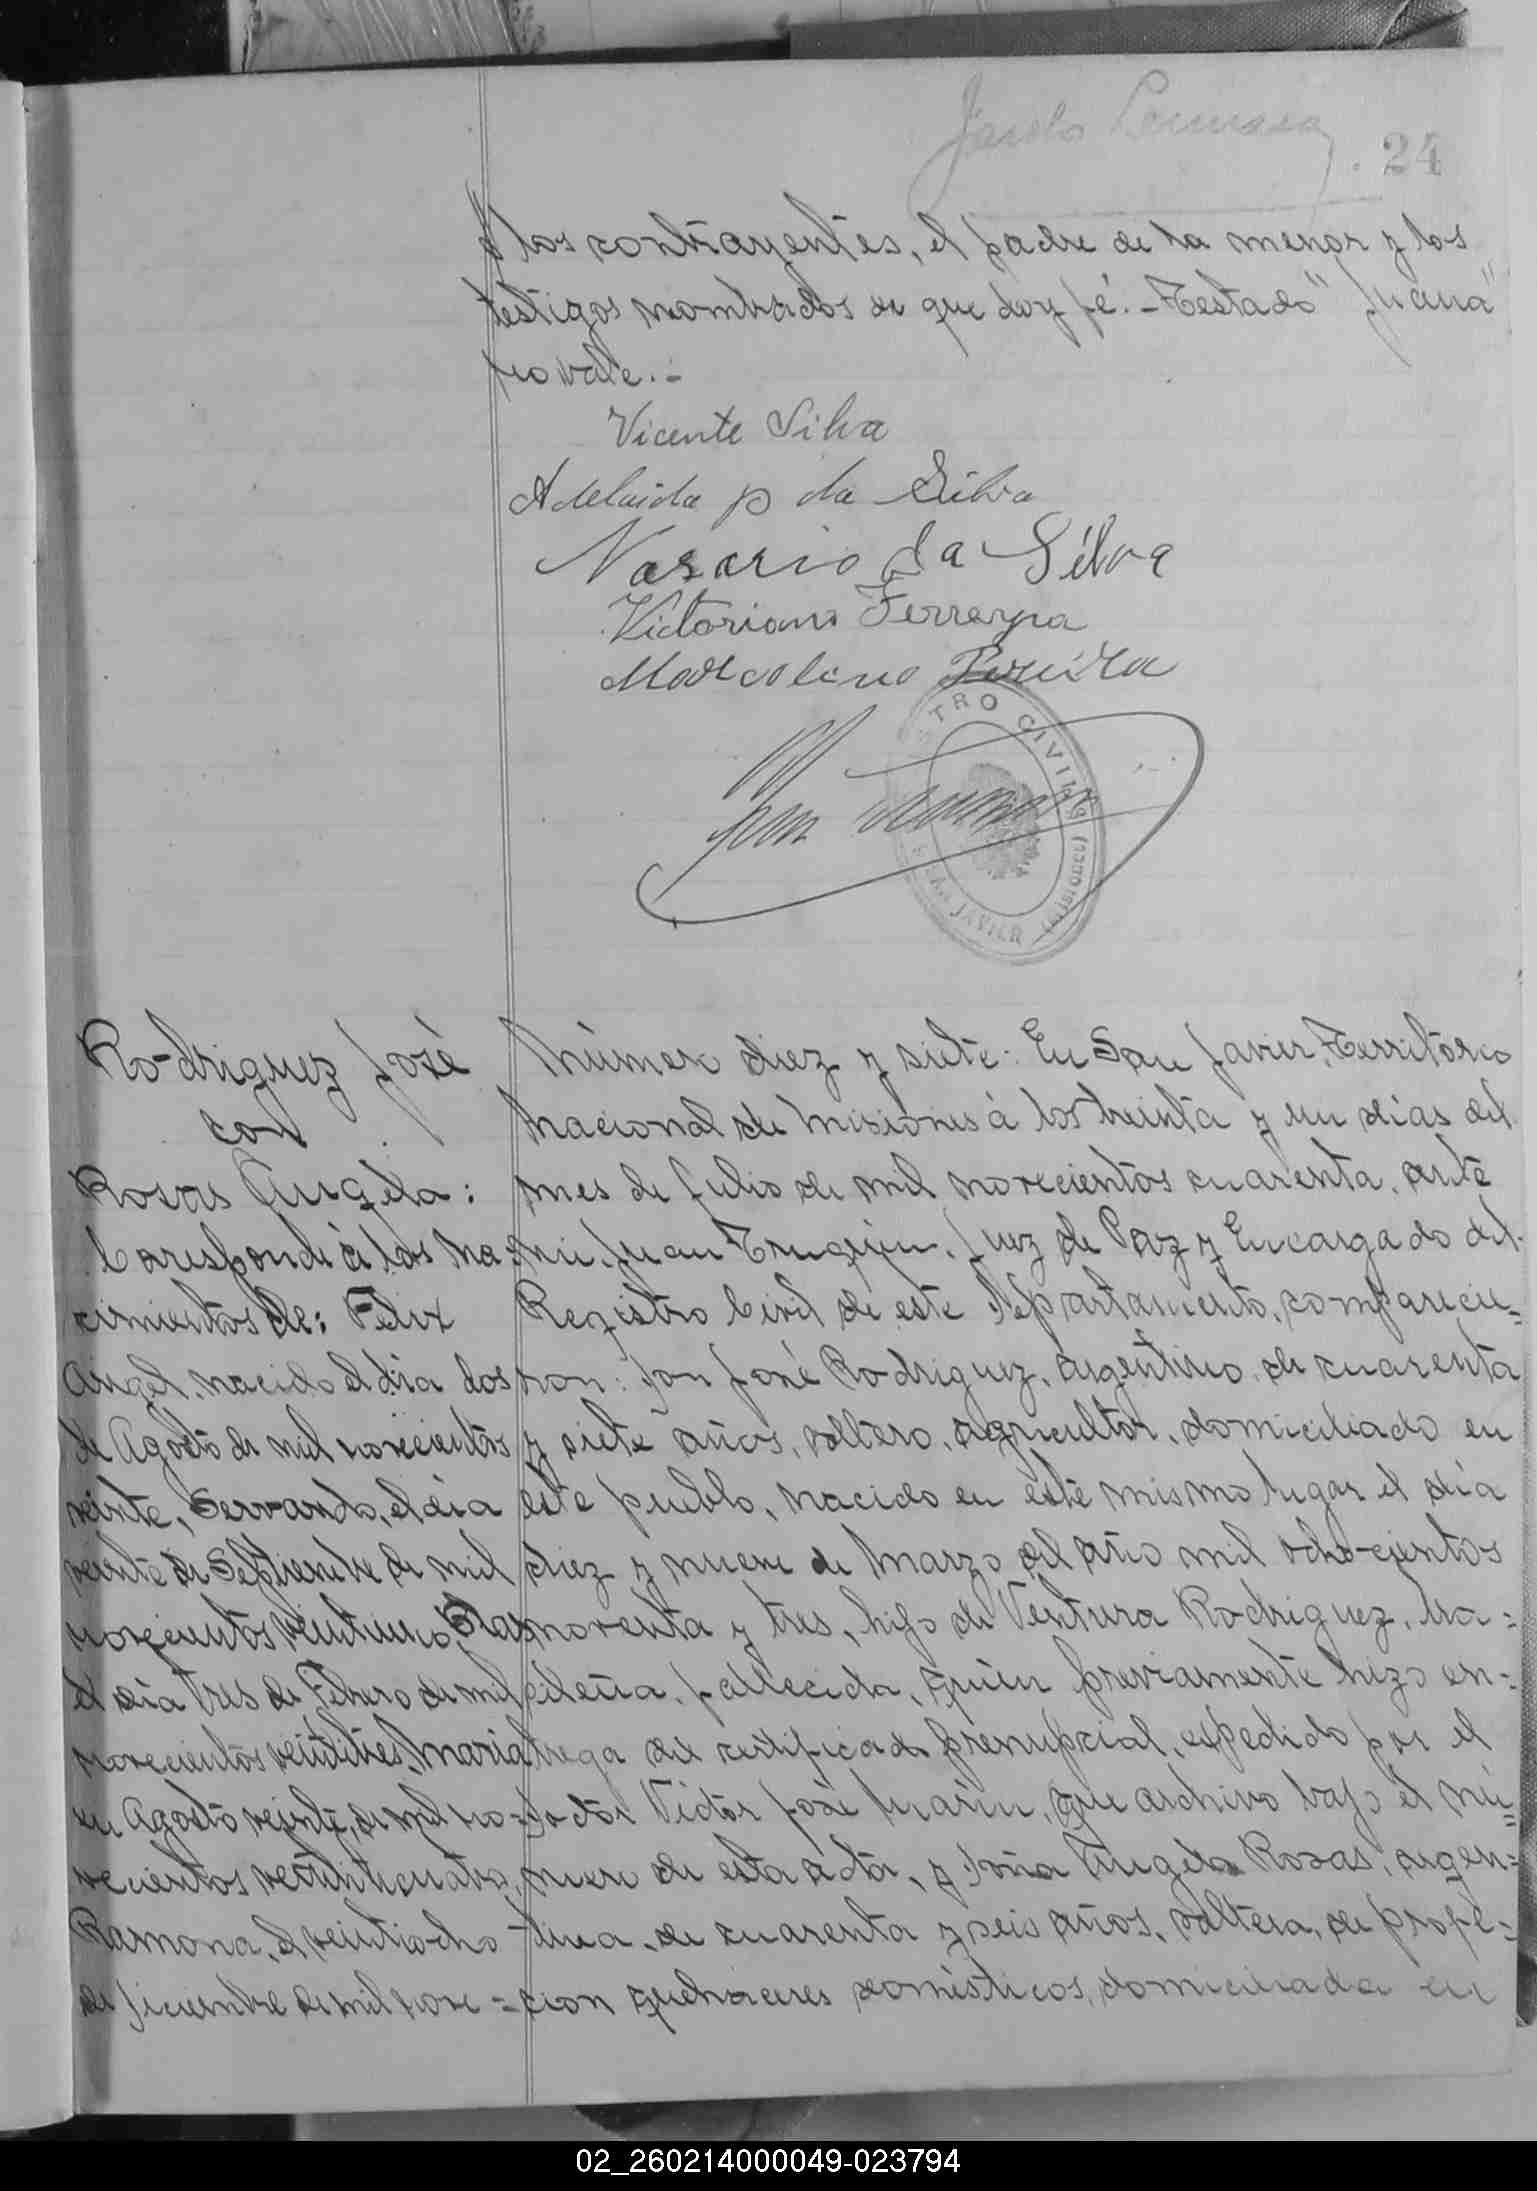 24
los contrayentes, el padre de la menor y los
testigos nombrados de que doy fé.- Testado "Juana"
no vale.-
Vicente Silva
Adelaida p da Silva
Nasario da Silva
Victoriano Ferreyra
Marcolino Pereira
Juan
TRO CIVIL
SAN JAVIER (Misiones)
Rodriguez José
con
Rosas Angela:
Coresponde á los na=
cimientos de: Felix
Angel, nacido el dia dos
de Agosto de mil novecientos
veinte, Servando, el dia
veinte de Septiembre de mil
novecientos veintiuno, Blas
el dia tres de Febrero de mil
novecientos veintitres, Maria
en Agosto veinte, de mil no=
vecientos veinticuatro,
Ramona, el veintiocho
de Diciembre de mil nove=
Número diez y siete: En San Javier, Territorio
Nacional de Misiones á los treinta y un dias del
mes de Julio de mil novecientos cuarenta, ante
mi, Juan, Juez de Paz y Encargado del
Registro Civil de este Departamento, comparecie=
ron: Don José Rodriguez, argentino, de cuarenta
y siete años, soltero, agricultor, domiciliado en
este pueblo, nacido en este mismo lugar el dia
diez y nueve de Marzo del año mil ochocientos
noventa y tres, hijo de Ventura Rodriguez, bra=
cileña, fallecida, quien previamente hizo en=
trega del certificado prenupcial, expedido por el
doctor Victor José Marin, que archivo bajo el nú=
mero de esta acta, y doña Angela Rosas, argen=
tina, de cuarenta y seis años, soltera, de profe=
cion quehaceres domésticos, domiciliada en
02_260214000049-023794